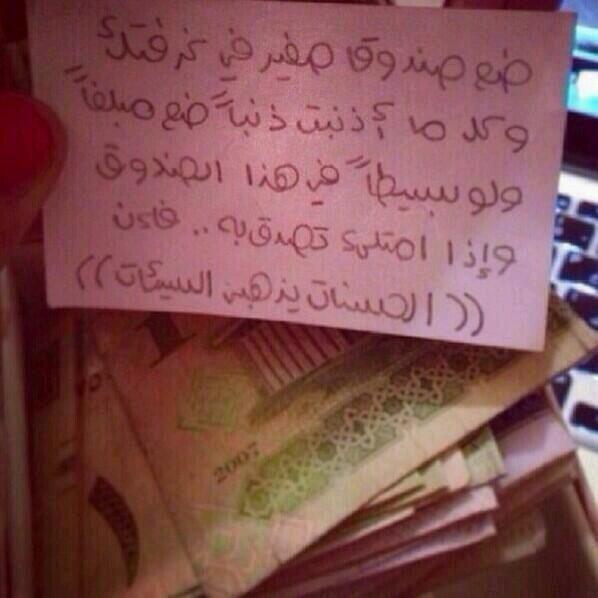 ضع صندوق صغير في غرفتك
وكل ما أذنبت ذنباً ضع مبلغاً
ولو بسيطاً في هذا الصندوق
وإذا امتلىء تصدق به .. فإن
((الحسنات يذهبن السيئات))
1
2007